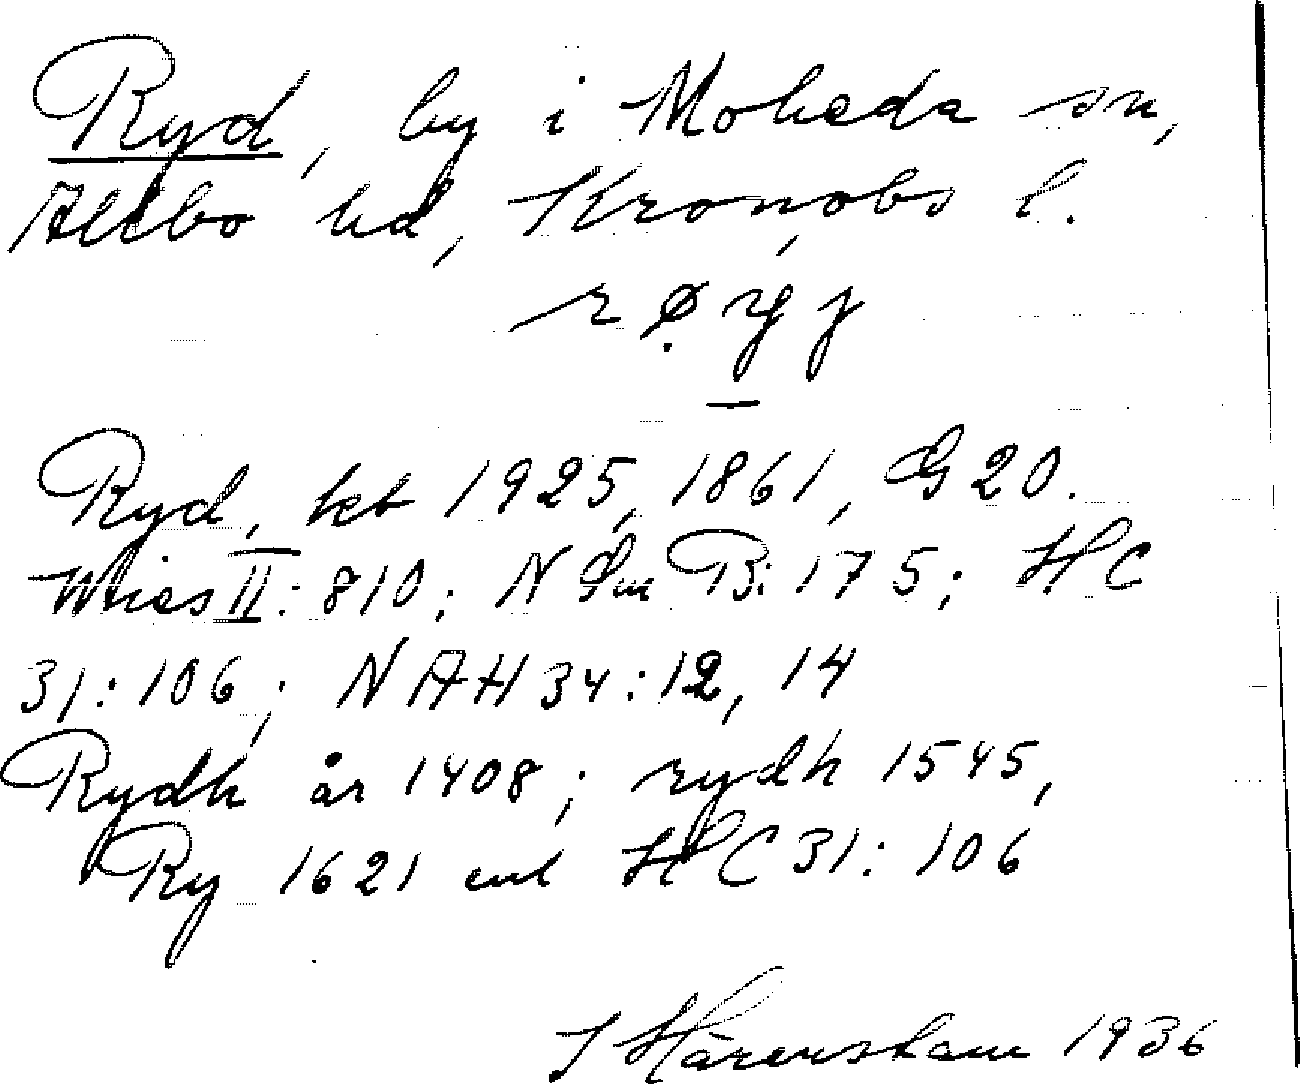 Ryd, by i Moheda sn,
Allbo hd, Kronobs l.
Ryd, kb 1925, 1861, G 20.
Wies II: 810; N Sm B: 175; HC
31: 106; NAH 34: 12, 14
Rydh år 1408; rydh 1545,
Ry 1621 enl HC 31: 106
J 1936